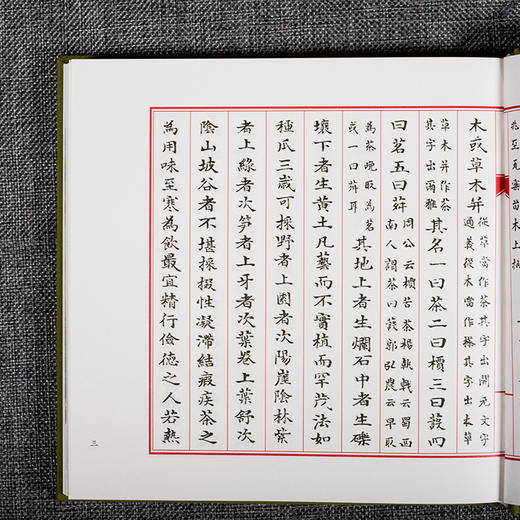 木或草木并從草當作茶其字出開元文字
通義從木當作搽其字出本草
草木并作荼
其字出爾雅其名一曰茶二曰檟三曰蔎四
曰茗五曰荈周公云檟苦荼楊執戟云蜀西
南人謂茶曰蔎郭弘農云早取
為茶晚取為茗
或一曰荈耳其地上者生爛石中者生礫
壤下者生黃土凡藝而不實植而罕茂法如
種瓜三歲可採野者上園者次陽崖陰林紫
者上綠者次笋者上牙者次葉卷上葉舒次
陰山坡谷者不堪採掇性凝滯結瘕疾茶之
為用味至寒為飲最宜精行儉德之人若熱
三